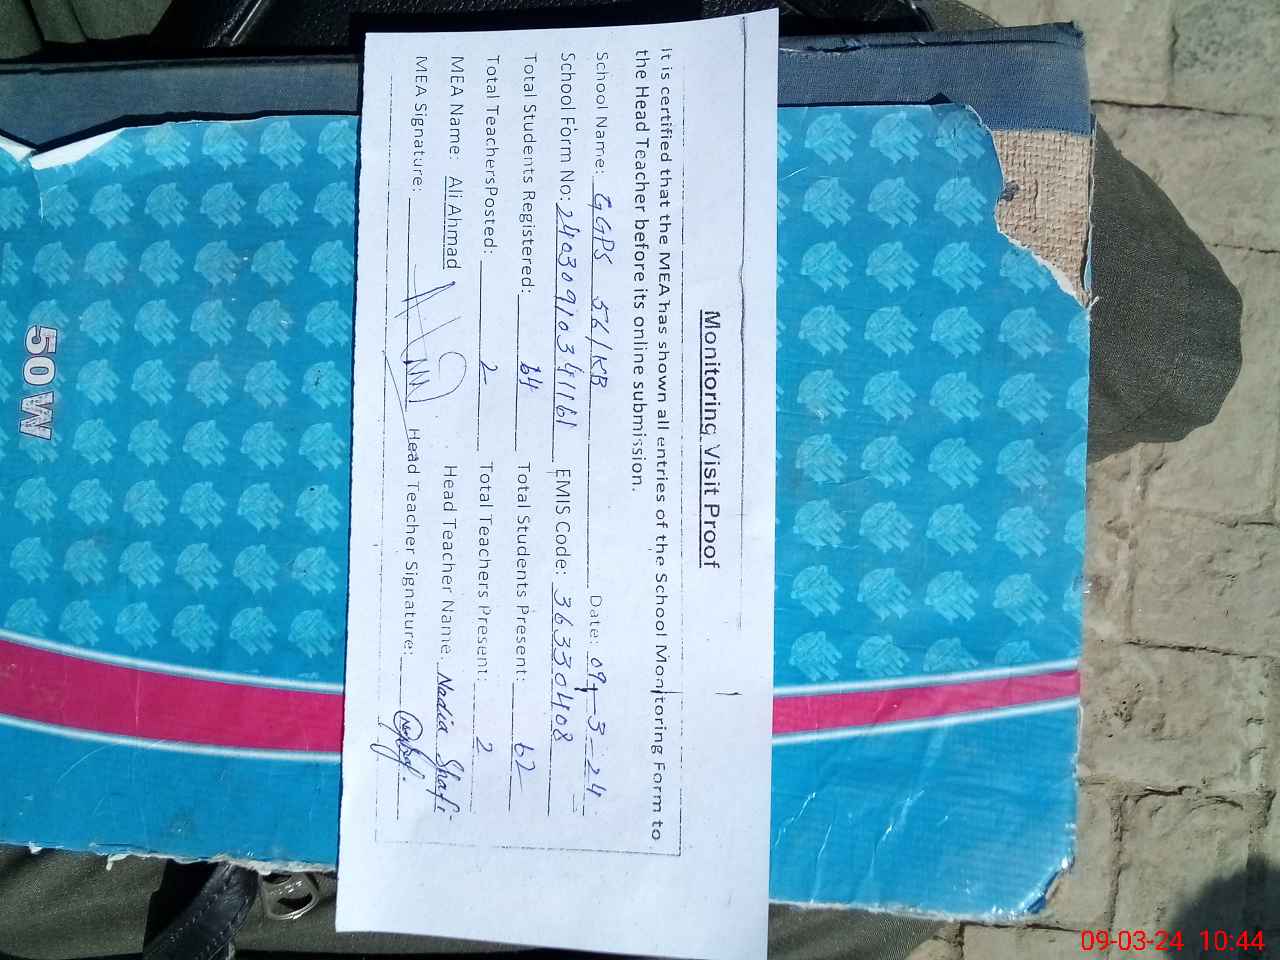 Monitoring Visit Proof
It is certified that the MEA has shown all entries of the School Monitoring Form to
the Head Teacher before its online submission.
School Name: GGPS 56/KB Date: 09-3-24
School Form No: 24030910341161 EMIS Code: 36330408
Total Students Registered: 64 Total Students Present: 62
Total TeachersPosted: 2 Total Teachers Present: 2
MEA Name: Ali Ahmad Head Teacher Name: Nadia Shafi
MEA Signature: Head Teacher Signature:
50W
09-03-24 10:44